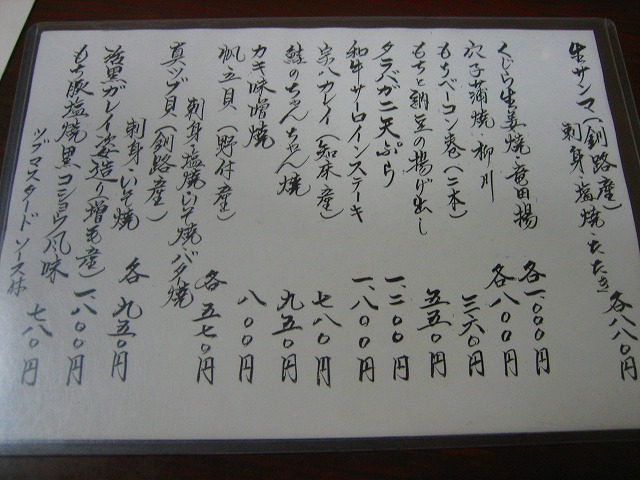 生サンマ(釧路産)
刺身・塩焼・たたき 各八八〇円
くじら生姜焼・竜田揚 各一、〇〇〇円
穴子蒲焼・柳川 各八〇〇円
もちベーコン巻(二本) 三六〇円
もちと納豆の揚げ出し 五五〇円
タラバガニ天ぷら 一、二〇〇円
和牛サーロインステーキ 一、八〇〇円
宗八カレイ(知床産) 七八〇円
鮭のちゃんちゃん焼 九五〇円
カキ味噌焼 八〇〇円
帆立貝(野付産)
刺身・塩焼・いそ焼・バタ焼 各五七〇円
真ツブ貝(釧路産)
刺身・いそ焼 各九五〇円
活黒ガレイ姿造り(増毛産) 一、八〇〇円
もち豚塩焼 黒コショウ風味 七八〇円
ツブマスタードソース付